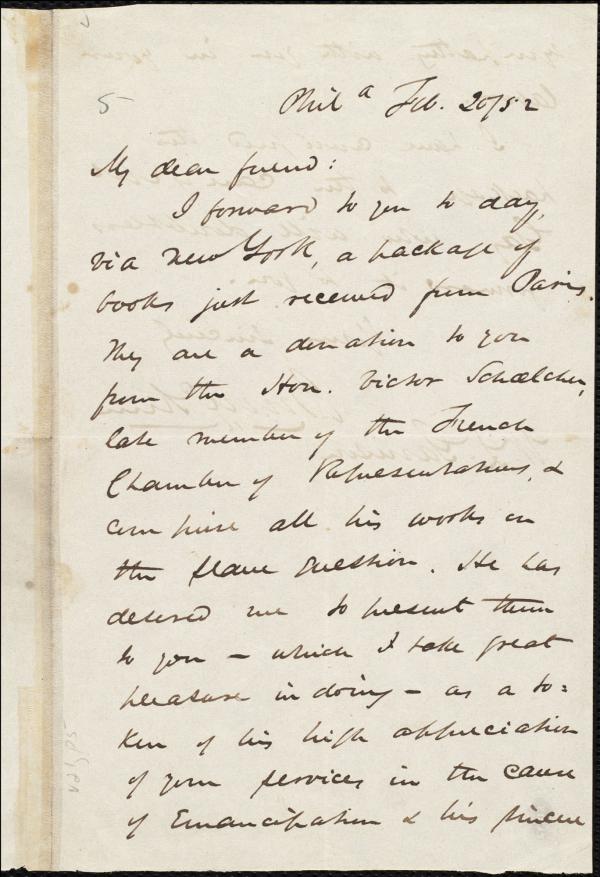 5
Phil a Feb. 20/52
My dear friend:
I forward to you to day,
via New York, a package of
books just received from Paris.
They are a donation to you
from the Hon. Victor Schœlcher,
late member of the French
Chamber of Representatives, &
comprise all his works on
the slave question. He has
desired me to present them
to you – which I take great
pleasure in doing – as a to=
ken of his high appreciation
of your services in the cause
of Emancipation & his sincere